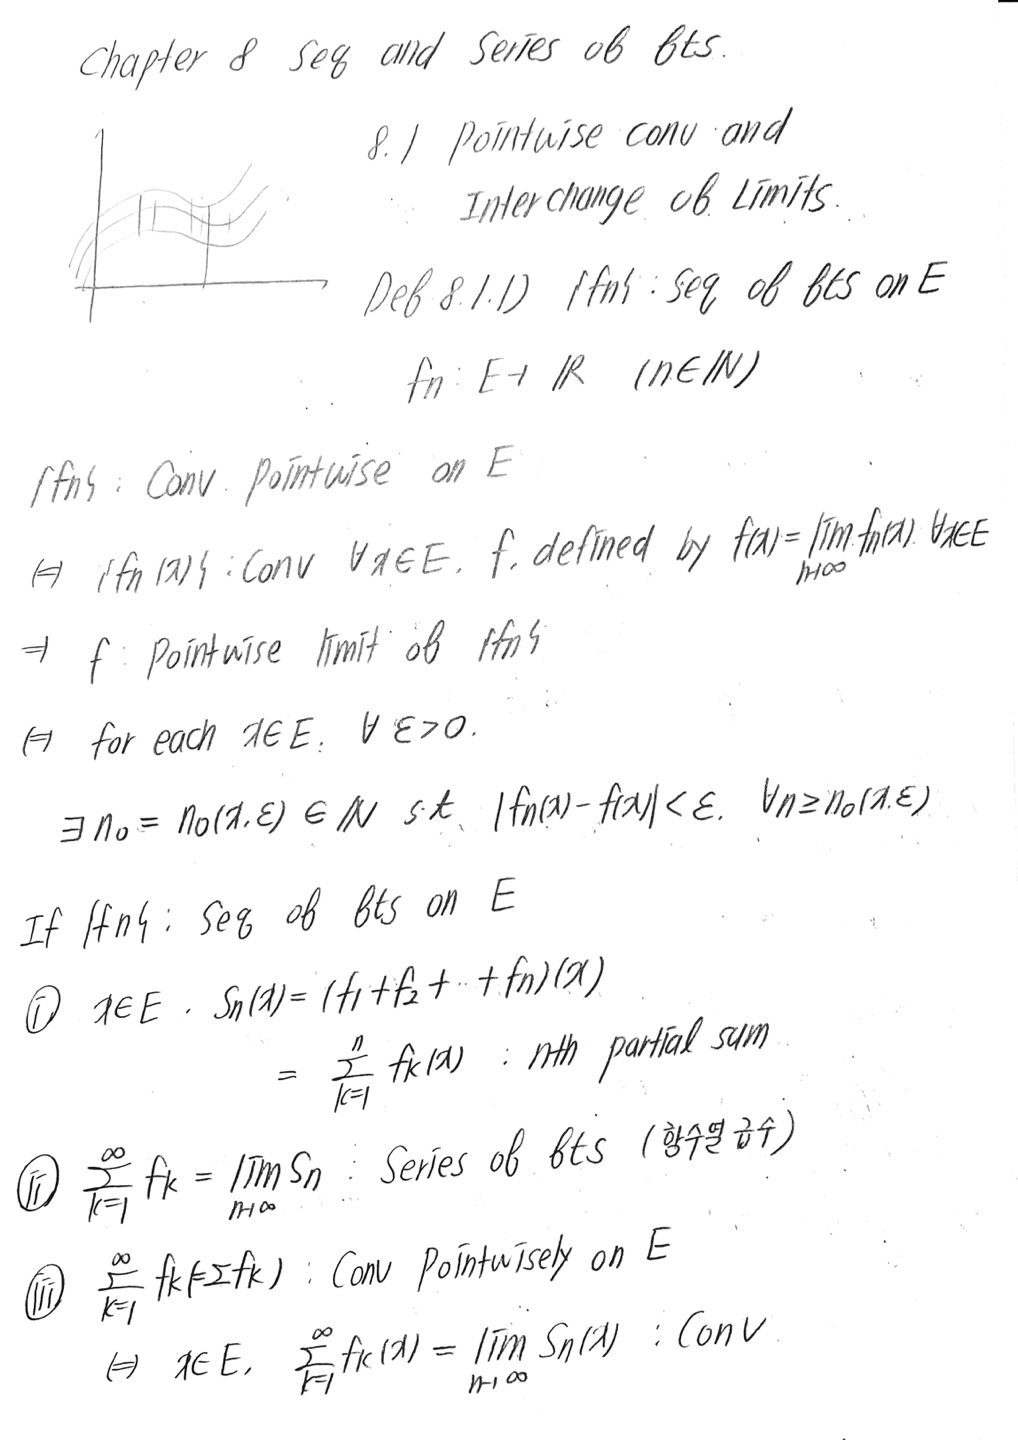 Chapter 8 Seq and Series of fts.
8.1 Pointwise conv and
Interchange of Limits.
Def 8.1.1) {fn} : Seq of fts on E
fn : E → ℝ (n∈ℕ)
{fn} : Conv. pointwise on E
⇔ {fn(x)} : Conv ∀x∈E. f. defined by f(x) = lim n→∞ fn(x) ∀x∈E
⇒ f : Pointwise limit of {fn}
⇔ for each x∈E. ∀ε>0.
∃n₀ = n₀(x.ε) ∈ ℕ s.t |fn(x)-f(x)|<ε. ∀n≥n₀(x.ε)
If {fn} : Seq of fts on E
ⓘ x∈E. Sn(x) = (f₁+f₂+ ·· +fn)(x)
= Σ k=1 n fk(x) : nth partial sum
ⅱ Σ k=1 ∞ fk = lim n→∞ Sn : Series of fts (함수열 급수)
ⅲ Σ k=1 ∞ fk(=Σfk) : Conv Pointwisely on E
⇔ x∈E. Σ k=1 ∞ fk(x) = lim n→∞ Sn(x) : Conv